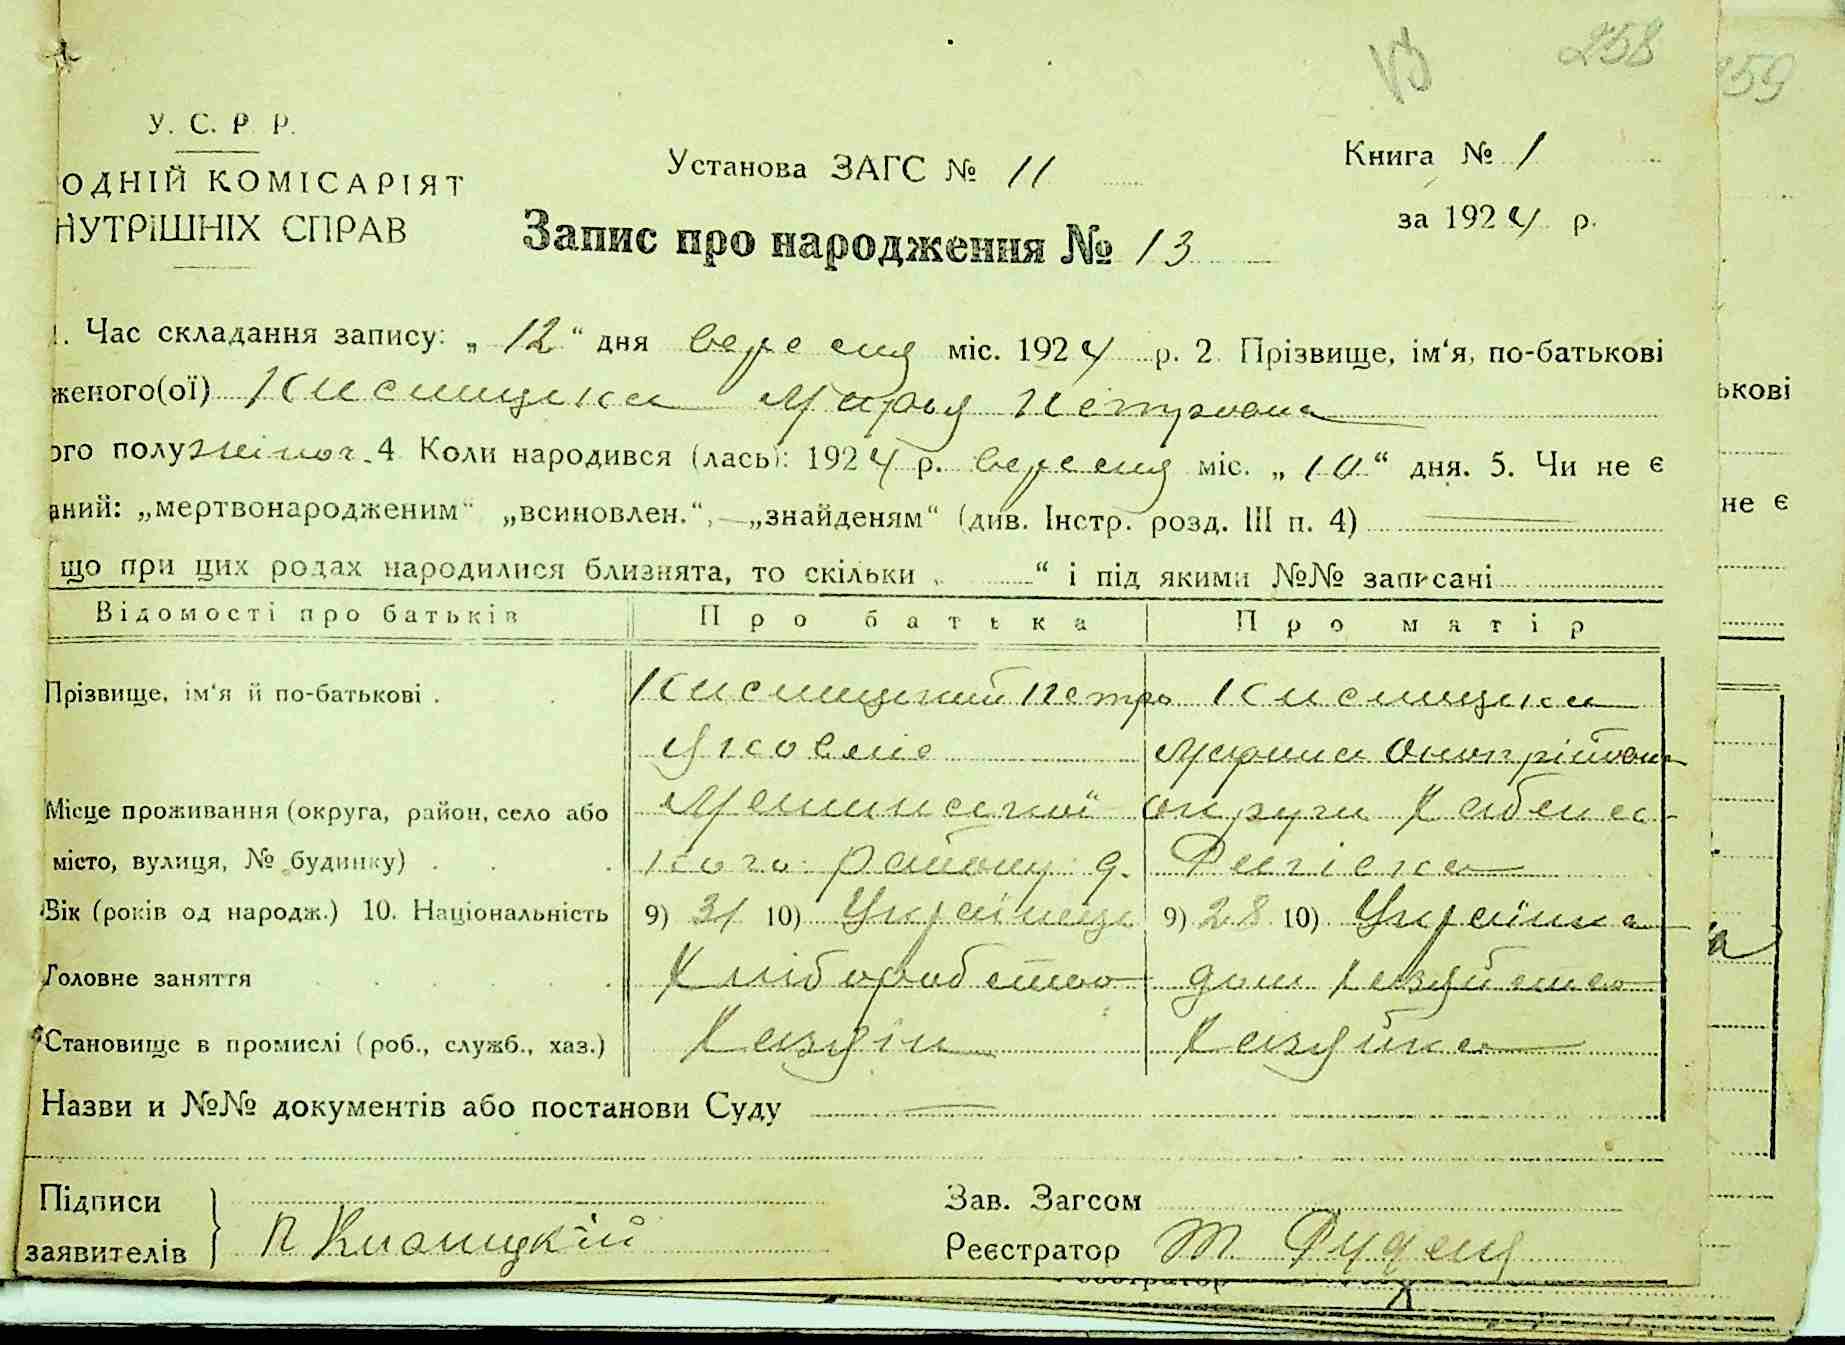 258
159
У. С. Р. Р.
ОДНІЙ КОМІСАРІЯТ
НУТРІШНІХ СПРАВ
Установа ЗАГС № 11
Книга № 1
за 1924 р.
Запис про народження № 13
1. Час складання запису: „12“ дня вересня міс. 1924 р. 2. Прізвище, ім‘я, по-батькові
женого(ої) Кислицка Марья Петровна
ого полу жіноч. 4 Коли народився (лась): 1924 р. вересня міс. „10“ дня. 5. Чи не є
аний: „мертвонародженим“ „всиновлен.“, „знайденям“ (див. Інстр. розд. III п. 4)
що при цих родах народилися близнята, то скільки „ “ і під якими №№ записані
Відомості про батьків Про батька Про матір
Прізвище, ім‘я й по-батькові . Кислицкий Петро Кислицка
Яковлів Марина Оноприівна
Місце проживання (округа, район, село або округи
місто, вулиця, № будинку) . кого району
Вік (років од народж.) 10. Національність 9) 31 10) Українець 9) 28 10) Українка
Головне заняття Хліборобство дом хазяйство
Становище в промислі (роб., служб., хаз.) Хазяін Хазяйка
Назви и №№ документів або постанови Суду
Підписи
заявителів П Кислицкій
Зав. Загсом
Реєстратор
ькові
не є